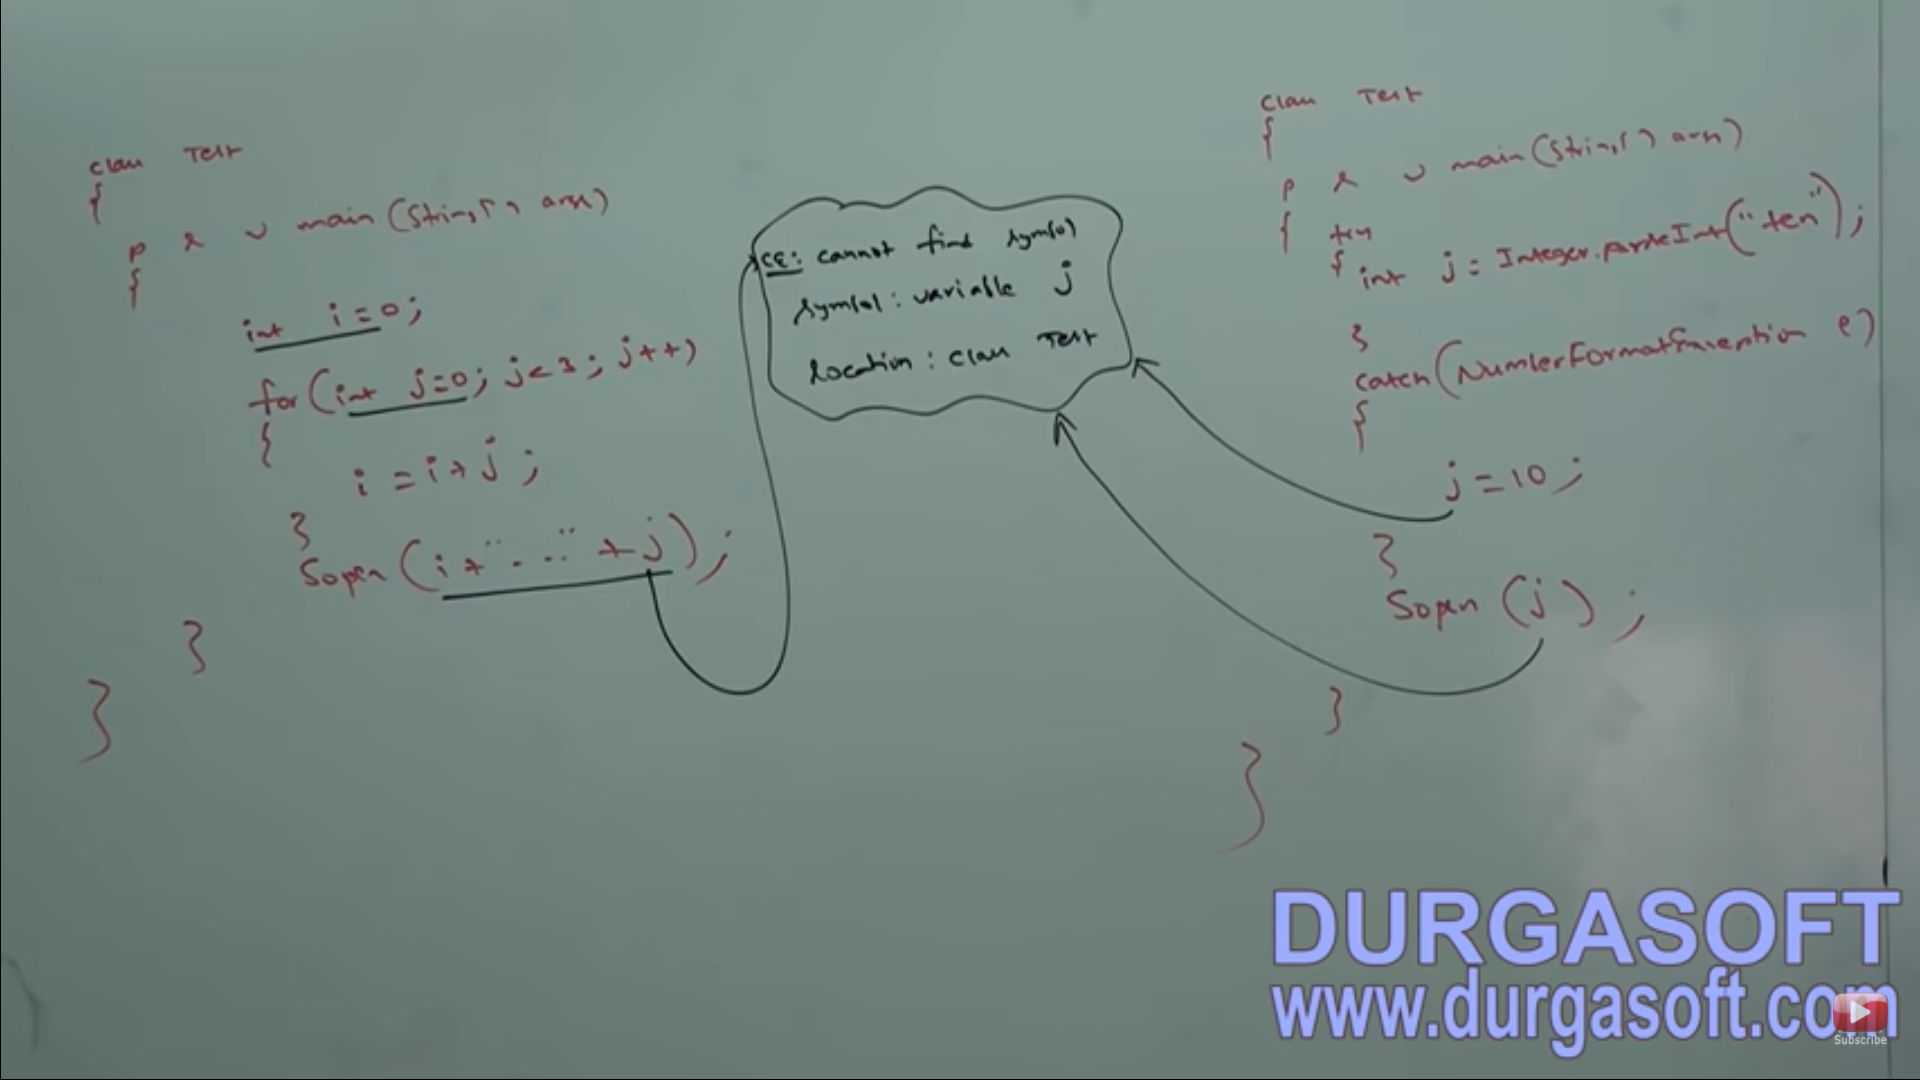 class Test
{
p s v main(String[] args)
{
int i=0;
for(int j=0; j<3; j++)
{
i=i+j;
}
Sopln(i+"---"+j);
}
}
CE: cannot find symbol
symbol: variable j
location: class Test
class Test
{
p s v main(String[] args)
{ try
{ int j = Integer.parseInt("ten");
}
catch(NumberFormatException e)
{
j=10;
}
Sopln(j);
}
}
DURGASOFT
www.durgasoft.com
Subscribe